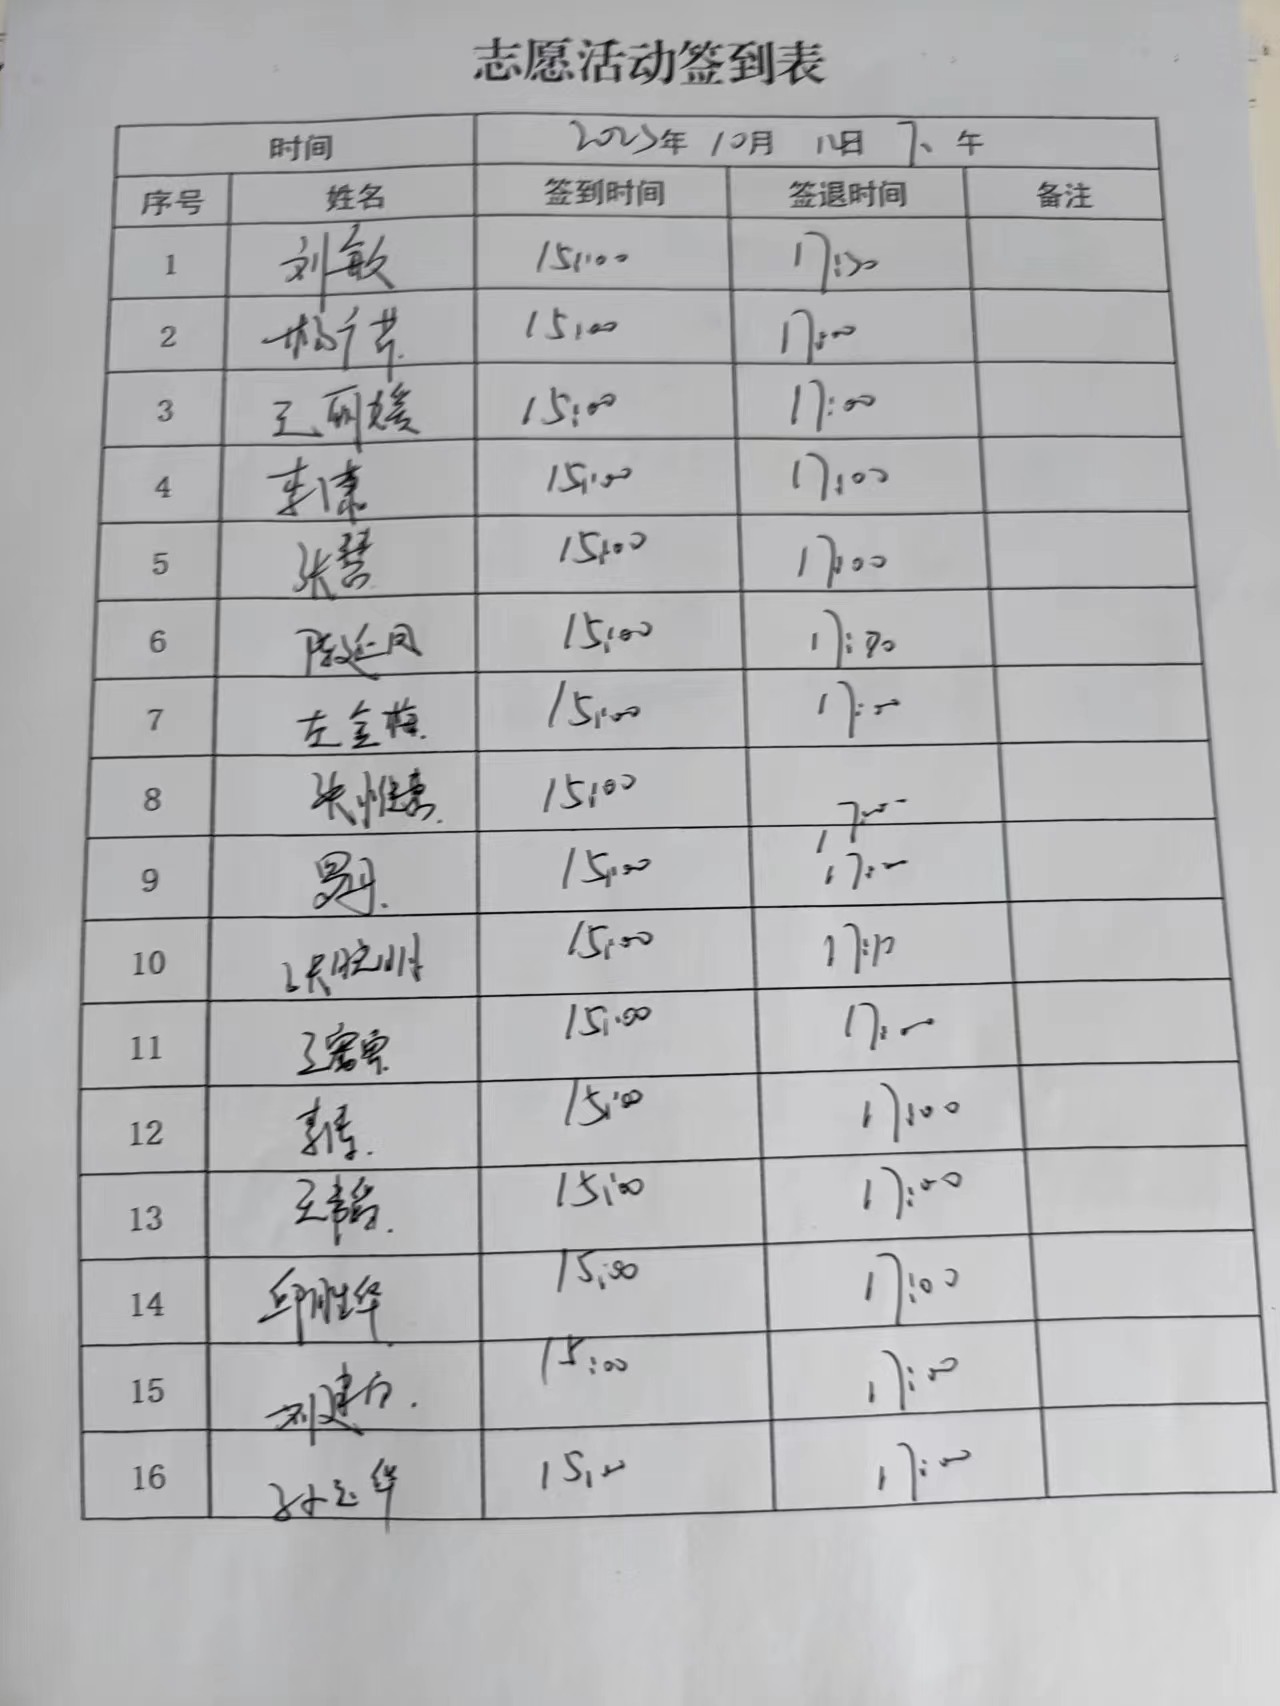 志愿活动签到表
时间 2023年 10月 12日 下午
序号 姓名 签到时间 签退时间 备注
1 刘敏 15:00 17:00
2 15:00 17:00
3 王丽媛 15:00 17:00
4 李倩 15:00 17:00
5 张 15:00 17:00
6 陈廷凤 15:00 17:00
7 左金梅 15:00 17:00
8 张惟惠 15:00 17:00
9 罗丹 15:00 17:00
10 15:00 17:
11 15:00 17:00
12 15:00 17:00
13 王 15:00 17:00
14 邱胜华 15:00 17:00
15 刘建 15:00 17:00
16 孙玉华 15:00 17:00